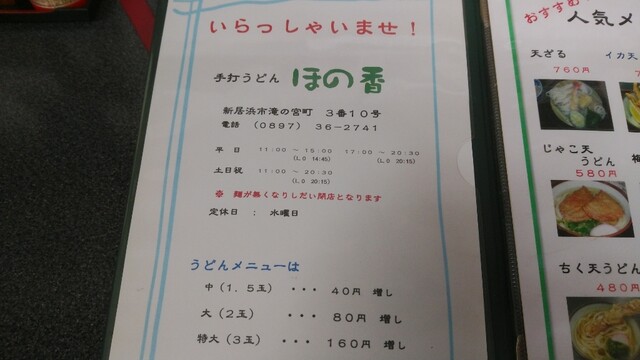 いらっしゃいませ！
手打うどん ほの香
新居浜市滝の宮町 ３番１０号
電話 （０８９７） ３６－２７４１
平 日 １１：００ ～ １５：００ １７：００ ～ ２０：３０
（L.O １４:４５） （L.O ２０:１５）
土日祝 １１：００ ～ ２０：３０
（L.O ２０:１５）
※ 麺が無くなりしだい閉店となります
定休日 ： 水曜日
うどんメニューは
中（１．５玉） ・・・ ４０円 増し
大（２玉） ・・・ ８０円 増し
特大（３玉） ・・・ １６０円 増し
おすすめ
人気メ
天ざる イカ天
７６０円
じゃこ天
うどん
５８０円
ちく天うどん
４８０円